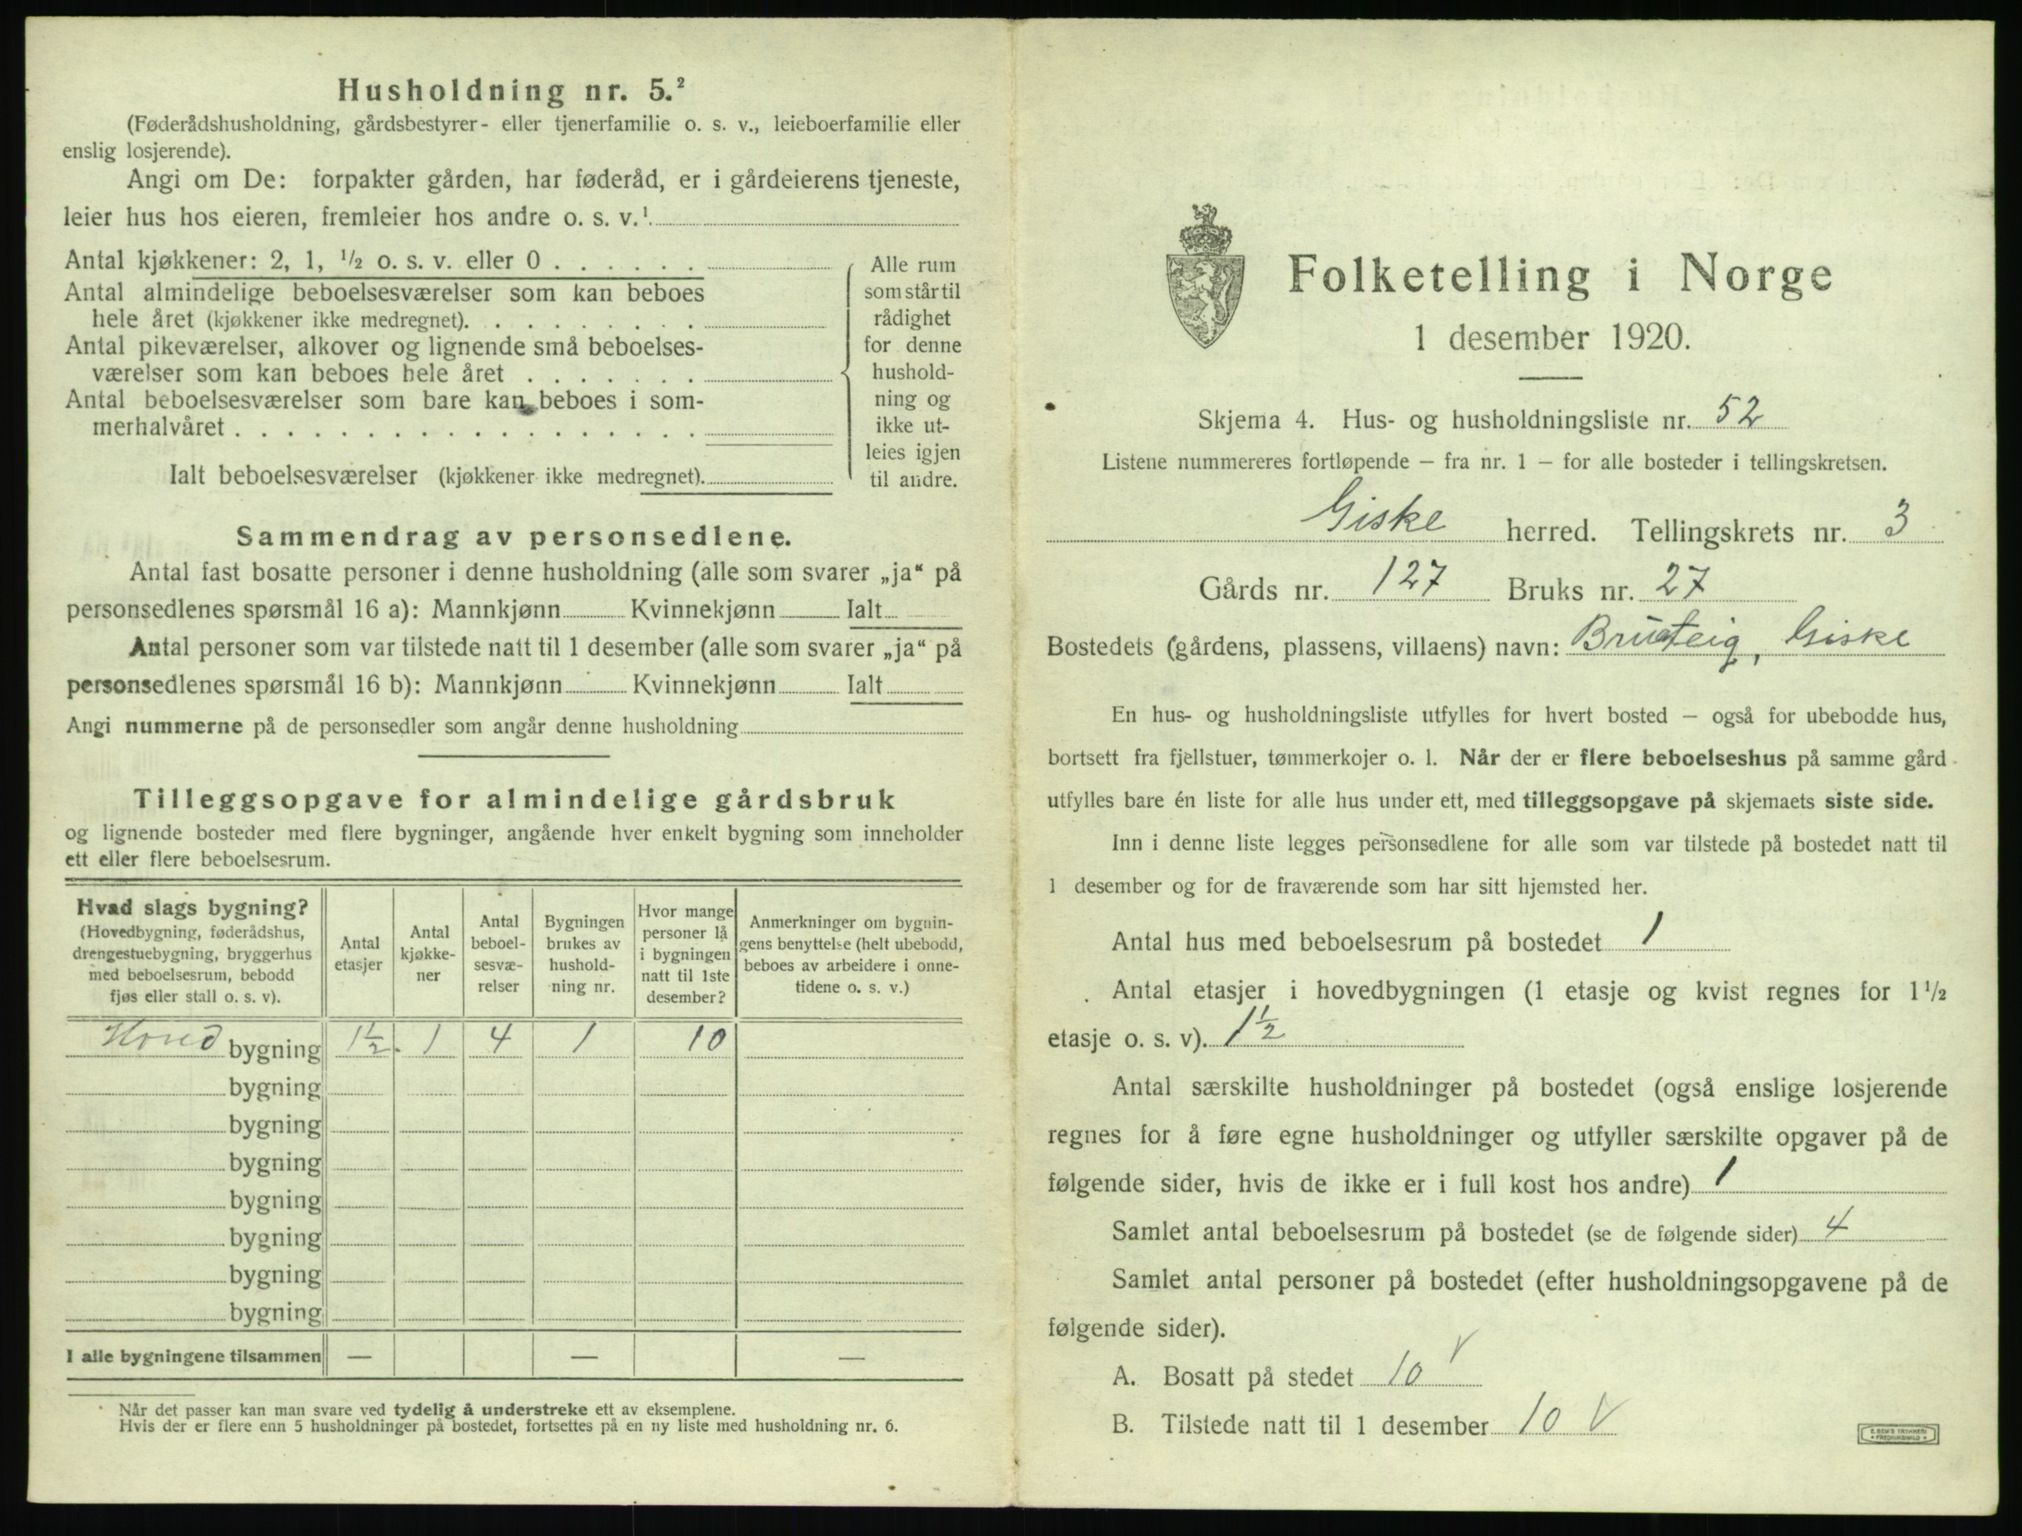 Husholdning nr. 5.²
(Føderådshusholdning, gårdsbestyrer- eller tjenerfamilie o. s. v., leieboerfamilie eller
enslig losjerende).
Angi om De: forpakter gården, har føderåd, er i gårdeierens tjeneste,
leier hus hos eieren, fremleier hos andre o. s. v.¹
Antal kjøkkener: 2, 1, ½ o. s. v. eller 0 . . . . . .
Antal almindelige beboelsesværelser som kan beboes
hele året (kjøkkener ikke medregnet). . . . . . . . .
Antal pikeværelser, alkover og lignende små beboelses-
værelser som kan beboes hele året . . . . . . .
Antal beboelsesværelser som bare kan beboes i som-
merhalvåret . . . . . . . . . . . . . . . . .
Ialt beboelsesværelser (kjøkkener ikke medregnet).
Alle rum
som står til
rådighet
for denne
hushold-
ning og
ikke ut-
leies igjen
til andre.
Sammendrag av personsedlene.
Antal fast bosatte personer i denne husholdning (alle som svarer „ja“ på
personsedlenes spørsmål 16 a): Mannkjønn Kvinnekjønn Ialt
Antal personer som var tilstede natt til 1 desember (alle som svarer „ja“ på
personsedlenes spørsmål 16 b): Mannkjønn Kvinnekjønn Ialt
Angi nummerne på de personsedler som angår denne husholdning
Tilleggsopgave for almindelige gårdsbruk
og lignende bosteder med flere bygninger, angående hver enkelt bygning som inneholder
ett eller flere beboelsesrum.
Hvad slags bygning?
(Hovedbygning, føderådshus,
drengestuebygning, bryggerhus
med beboelsesrum, bebodd
fjøs eller stall o. s. v).
Antal
etasjer
Antal
kjøkke-
ner
Antal
beboel-
sesvæ-
relser
Bygningen
brukes av
hushold-
ning nr.
Hvor mange
personer lå
i bygningen
natt til 1ste
desember?
Anmerkninger om bygnin-
gens benyttelse (helt ubebodd,
beboes av arbeidere i onne-
tidene o. s. v.)
Hoved bygning 1½. 1 4 1 10
bygning
bygning
bygning
bygning
bygning
bygning
bygning
I alle bygningene tilsammen — — —
Når det passer kan man svare ved tydelig å understreke ett av eksemplene.
Hvis der er flere enn 5 husholdninger på bostedet, fortsettes på en ny liste med husholdning nr. 6.
Folketelling i Norge
1 desember 1920.
Skjema 4. Hus- og husholdningsliste nr. 52
Listene nummereres fortløpende — fra nr. 1 — for alle bosteder i tellingskretsen.
Giske herred. Tellingskrets nr. 3
Gårds nr. 127 Bruks nr. 27
Bostedets (gårdens, plassens, villaens) navn: Giske
En hus- og husholdningsliste utfylles for hvert bosted — også for ubebodde hus,
bortsett fra fjellstuer, tømmerkojer o. l. Når der er flere beboelseshus på samme gård
utfylles bare én liste for alle hus under ett, med tilleggsopgave på skjemaets siste side.
Inn i denne liste legges personsedlene for alle som var tilstede på bostedet natt til
1 desember og for de fraværende som har sitt hjemsted her.
Antal hus med beboelsesrum på bostedet 1
Antal etasjer i hovedbygningen (1 etasje og kvist regnes for 1½
etasje o. s. v). 1½
Antal særskilte husholdninger på bostedet (også enslige losjerende
regnes for å føre egne husholdninger og utfyller særskilte opgaver på de
følgende sider, hvis de ikke er i full kost hos andre) 1
Samlet antal beboelsesrum på bostedet (se de følgende sider) 4
Samlet antal personer på bostedet (efter husholdningsopgavene på de
følgende sider).
A. Bosatt på stedet 10 V
B. Tilstede natt til 1 desember 10 V